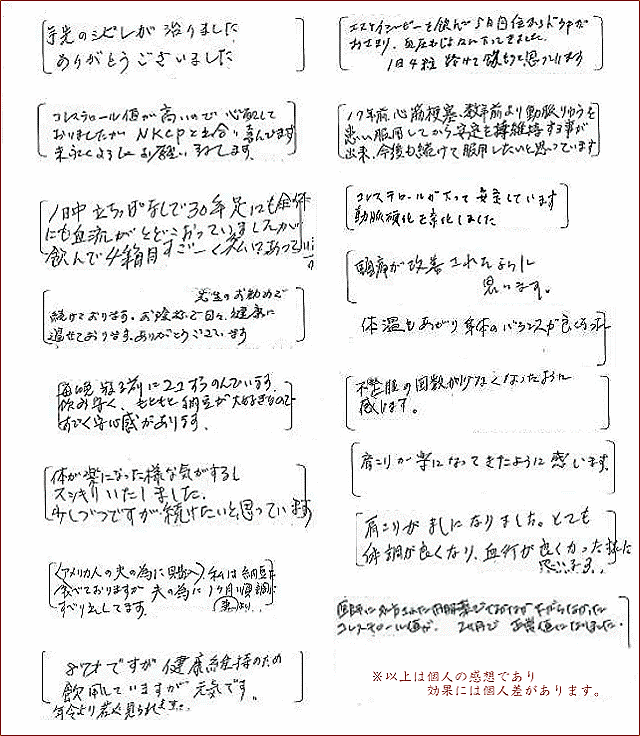 手先のシビレが治りました
ありがとうございました
コレステロール値が高いので心配して
おりましたが NKCPと出合い喜んでます
1日中立ちっぱなしで30年足にも全体
にも血流がとどこおっていましたが
飲んで4箱目すごーく私にあって
先生のお勧めで
続けております。お陰様で日々、健康に
過せております。ありがとうございます
毎晩寝る前に2コずつのんでいます。
飲み易く、もともと納豆が大好きなので
すごく安心感があります。
体が楽になった様な気がするし
スッキリいたしました。
少しづつですが続けたいと思っています
(アメリカ人の夫の為に購入)私は納豆
食べておりますが 夫の為に 1ヶ月順調に
すべり出してます。
ですが健康維持のため
飲用していますが元気です。
年令より若く見られます。
を飲んで5日目位から
おさまり、血圧も
1日4粒 続けて
17年前心筋梗塞、数年前より動脈りゅうを
患い服用してから安定を維持する事が
出来、今後も続けて服用したいと思っています
コレステロールが下って安定しています
動脈硬化も
頭痛が改善されたように
思います。
体温もあがり身体のバランスが良くなった
の回数が少なくなったように
感じます。
肩こりが楽になってきたように感じます。
肩こりがましになりました。とても
体調が良くなり、血行が良くなった様に
思います。
コレステロール値が、2ヶ月で 正常値になりました。
※以上は個人の感想であり
効果には個人差があります。